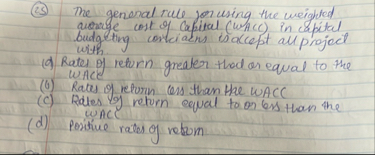 (23) The general rule for using the weighted
average cost of Capital (WACC) in capital
budgeting decisions is to accept all project
with
(a) Rates of return greater than or equal to the
WACC
(b) Rates of return less than the WACC
(c) Rates of return equal to or less than the
WACC
(d) Positive rates of return